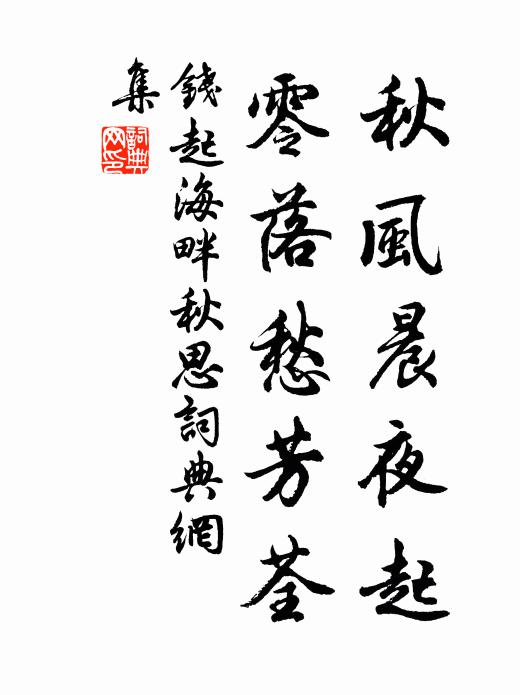 秋風晨夜起
零落愁芳荃
錢起海畔秋思詞典網
集
詞典
网印